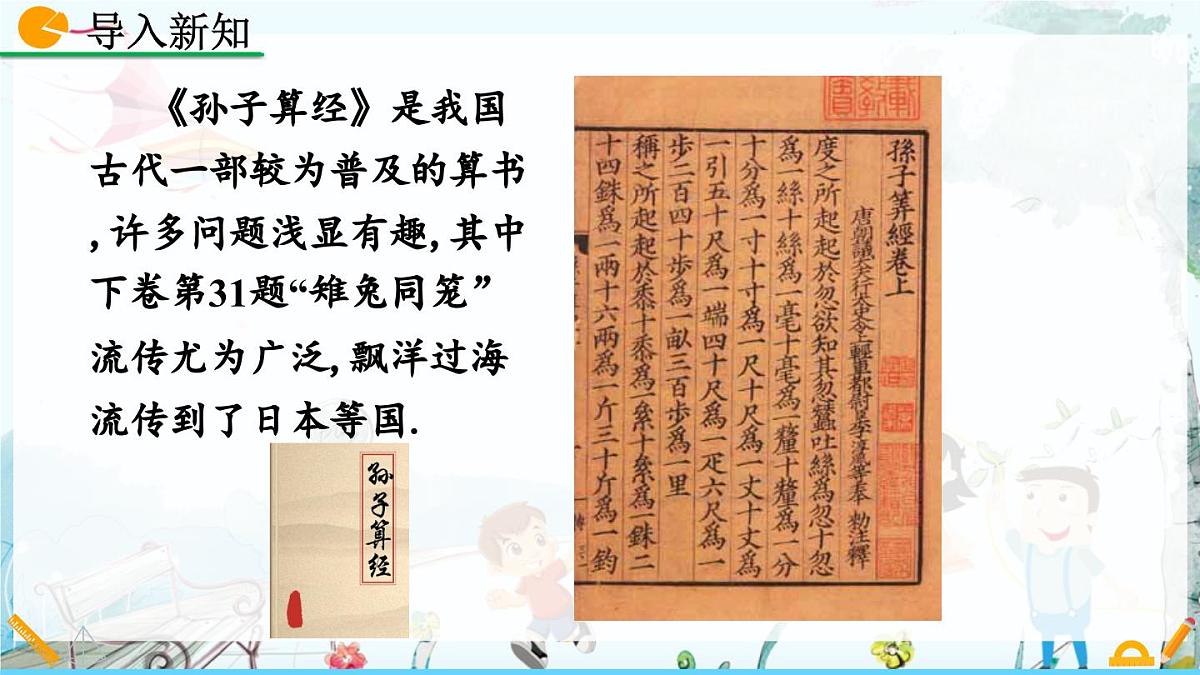 导入新知
《孙子算经》是我国
古代一部较为普及的算书
,许多问题浅显有趣,其中
下卷第31题“雉兔同笼”
流传尤为广泛,飘洋过海
流传到了日本等国.
孙子算经
孫子筭經卷上
唐朝議大夫行太史令上輕車都尉臣李淳風等奉 勅注釋
度之所起起於忽欲知其忽蠶吐絲為忽十忽
為一絲十絲為一毫十毫為一釐十釐為一分
十分為一寸十寸為一尺十尺為一丈十丈為
一引五十尺為一端四十尺為一疋六尺為一
步二百四十步為一畝三百步為一里
稱之所起起於黍十黍為一絫十絫為一銖二
十四銖為一兩十六兩為一斤三十斤為一鈞